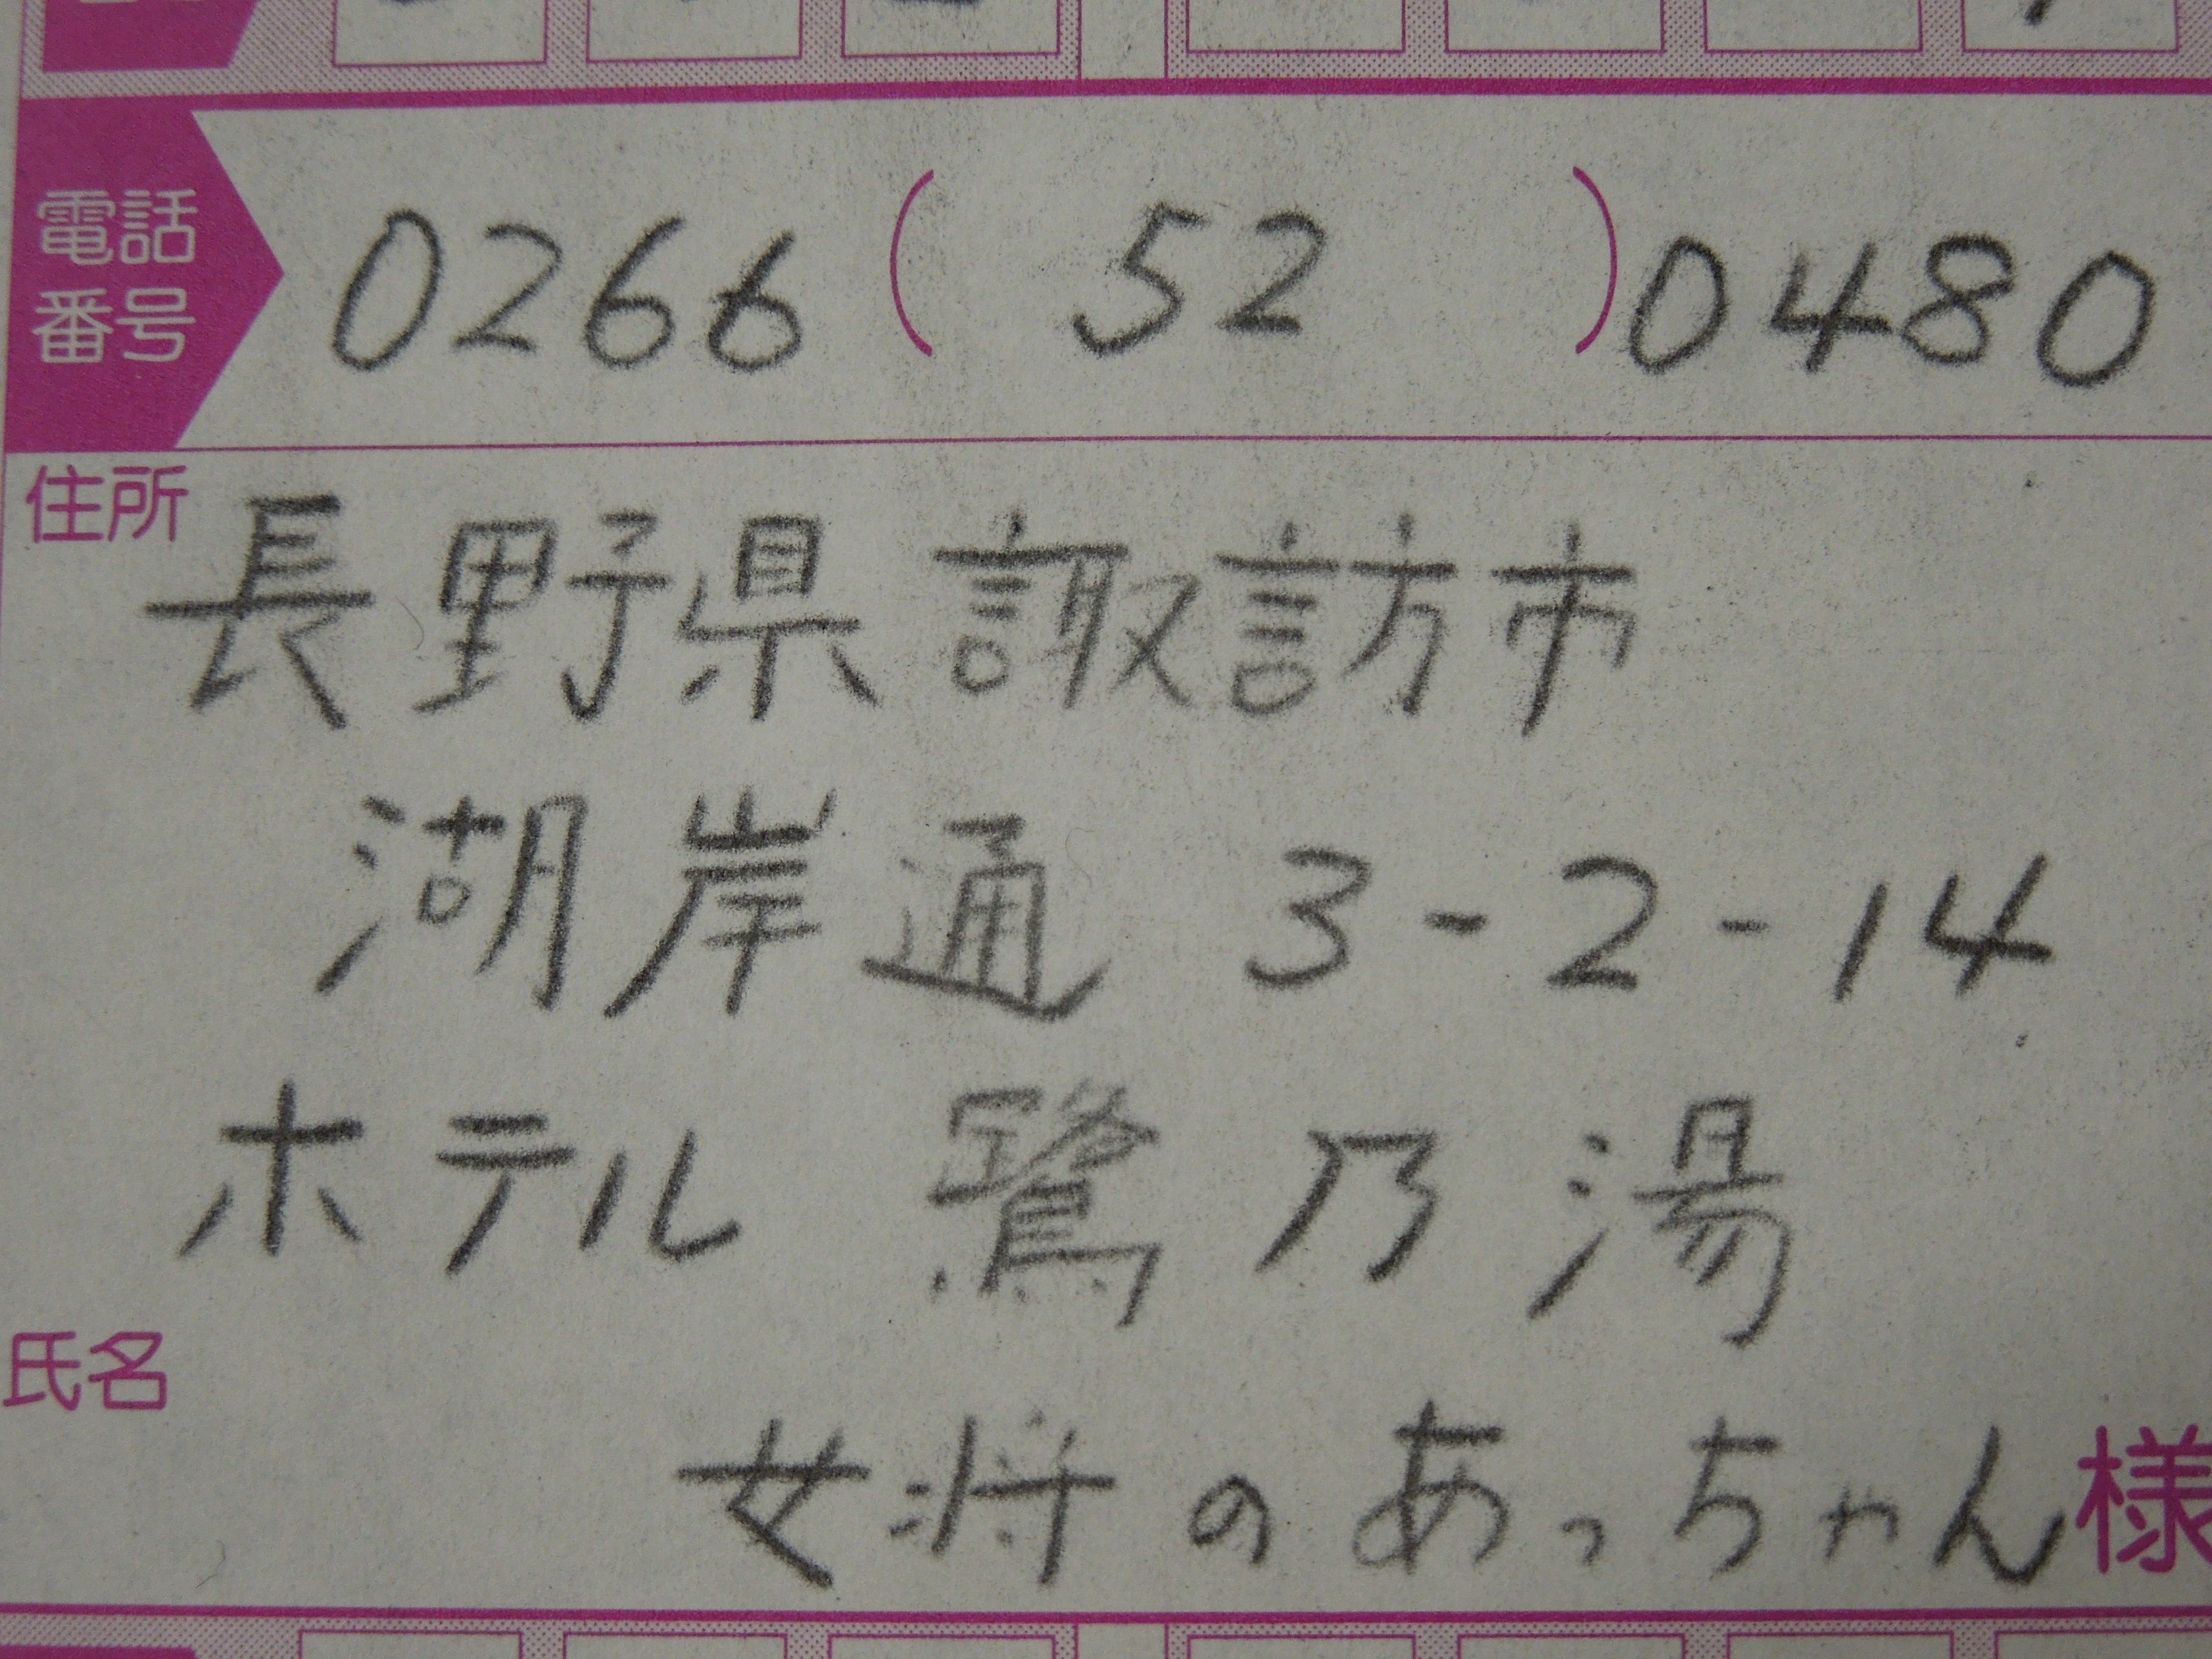 電話
番号
0266 ( 52 ) 0480
住所
長野県諏訪市
湖岸通 3-2-14
ホテル 鷺乃湯
氏名
女将のあっちゃん様